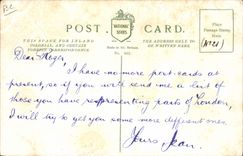 P.C.
POST CARD.
NATIONAL SERIES
THIS SPACE FOR INLAND
COLONIAL, AND CERTAIN
FOREIGN CORRESPONDENCE.
Made in Gt. Britain.
THE ADDRESS ONLY TO
BE WRITTEN HERE.
Place
Postage Stamp
Here.
Dear Roger,
I have no more post cards at
present, so if you will send me a list of
those you have representing parts of London,
I will try to get you some more different ones.
Yours Jean.